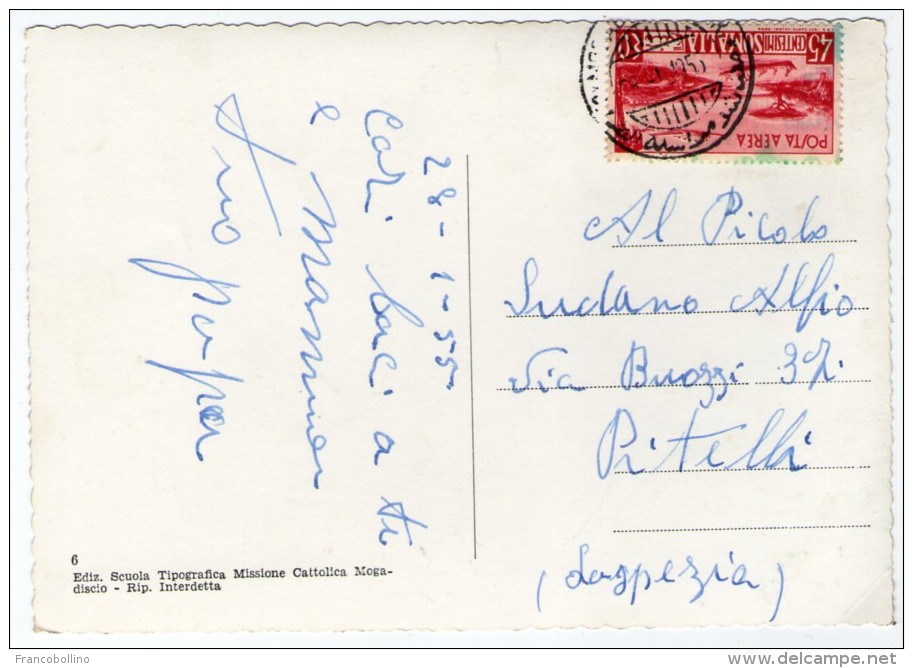 28-1-55
Cari baci a te
e Mamma
tuo papa
6
Ediz. Scuola Tipografica Missione Cattolica Moga-
discio - Rip. Interdetta
45 CENTESIMI SOMALIA
POSTA AEREA
Al Picolo
Ludano Alfio
Via Buozzi 37
Pitelli
(Laspezia)
© Francobollino
http://www.delcampe.net